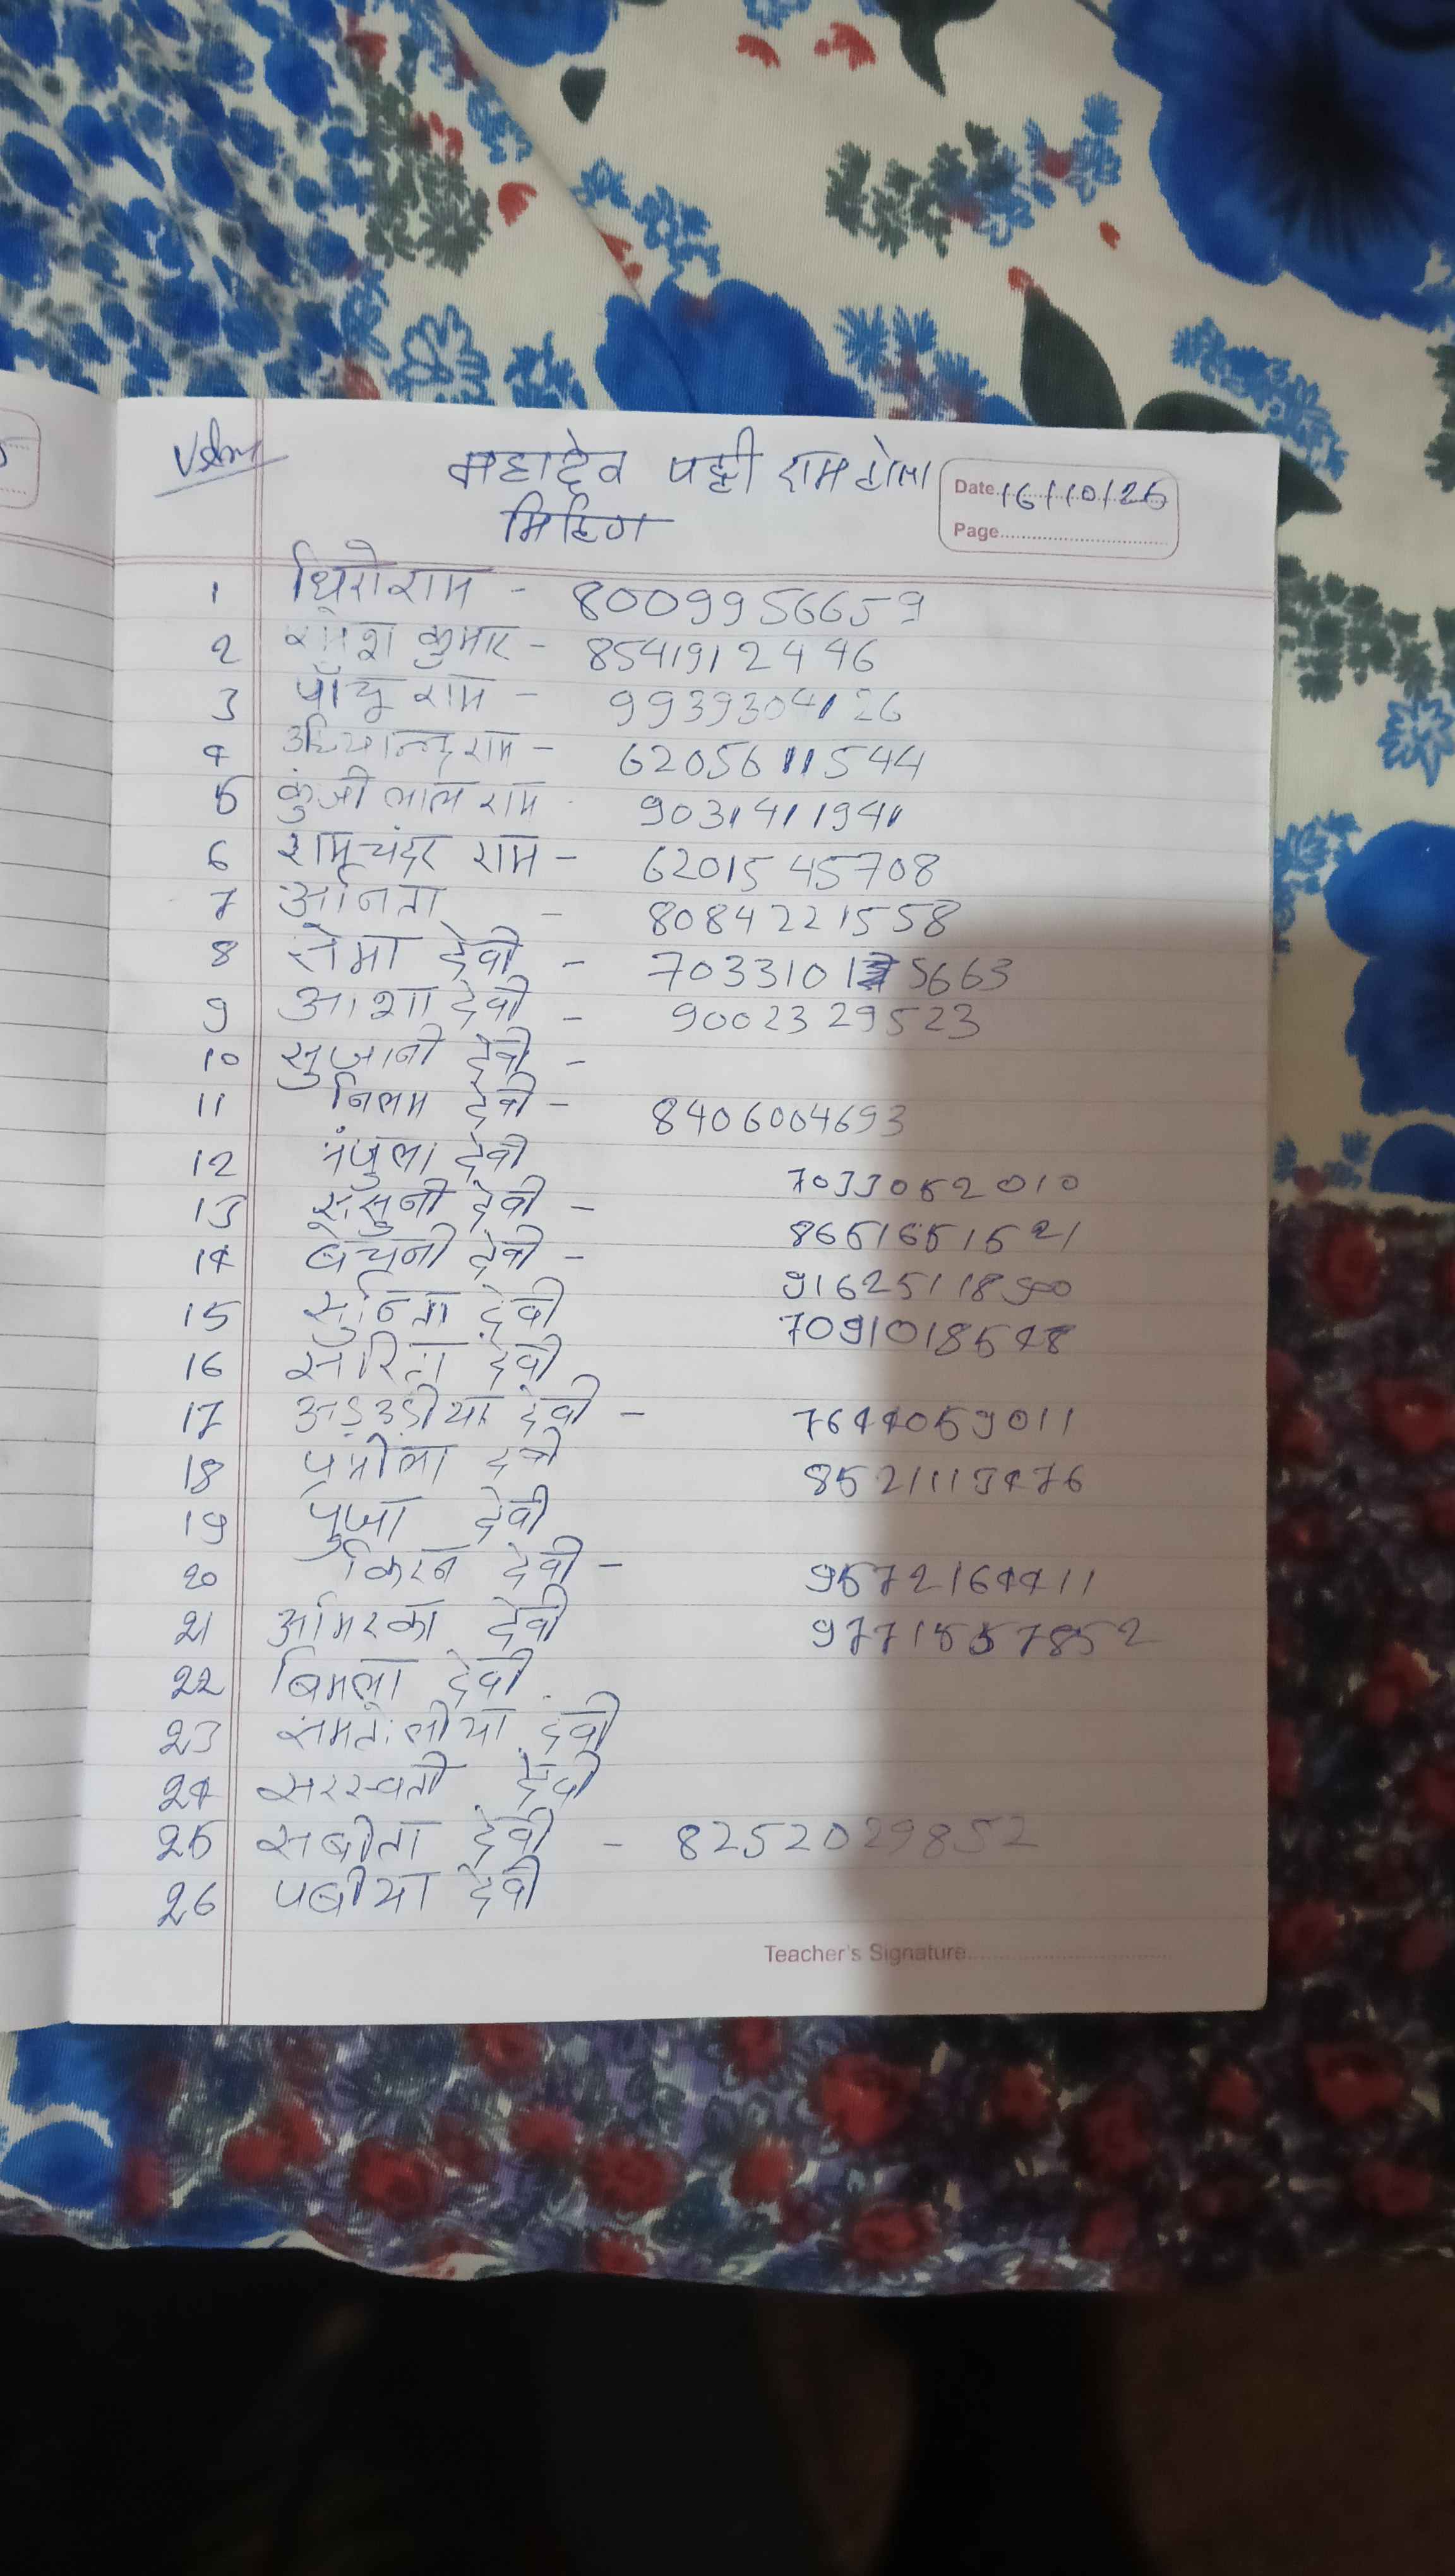 महादेव पट्टी राम टोला
Date 16/10/25
मिटिंग
Page
1 धिरोराम - 8009956659
2 रमेश कुमार - 8541912446
3 पाँचू राम - 9939304126
4 राम - 6205611544
5 कुंजी लाल राम 9031411941
6 रामचंदर राम - 6201545708
7 अनिता - 8084221558
8 सोमा देवी -
9 आशा देवी - 9002329523
10 सुजानी देवी -
11 निलम देवी - 8406004693
12 मंजुला देवी 7033052010
13 देवी - 8651651521
14 बेचनी देवी - 9162511890
15 सुनिता देवी 7091018548
16 सरिता देवी
17 देवी - 7644059011
18 प्रमीला देवी 8521113476
19 पुजा देवी
20 किरन देवी - 9572164411
21 अमिरका देवी 9771557852
22 बिमला देवी
23 देवी
24 सरस्वती देवी
25 सबीता देवी - 8252029852
26 पबीया देवी
Teacher's Signature